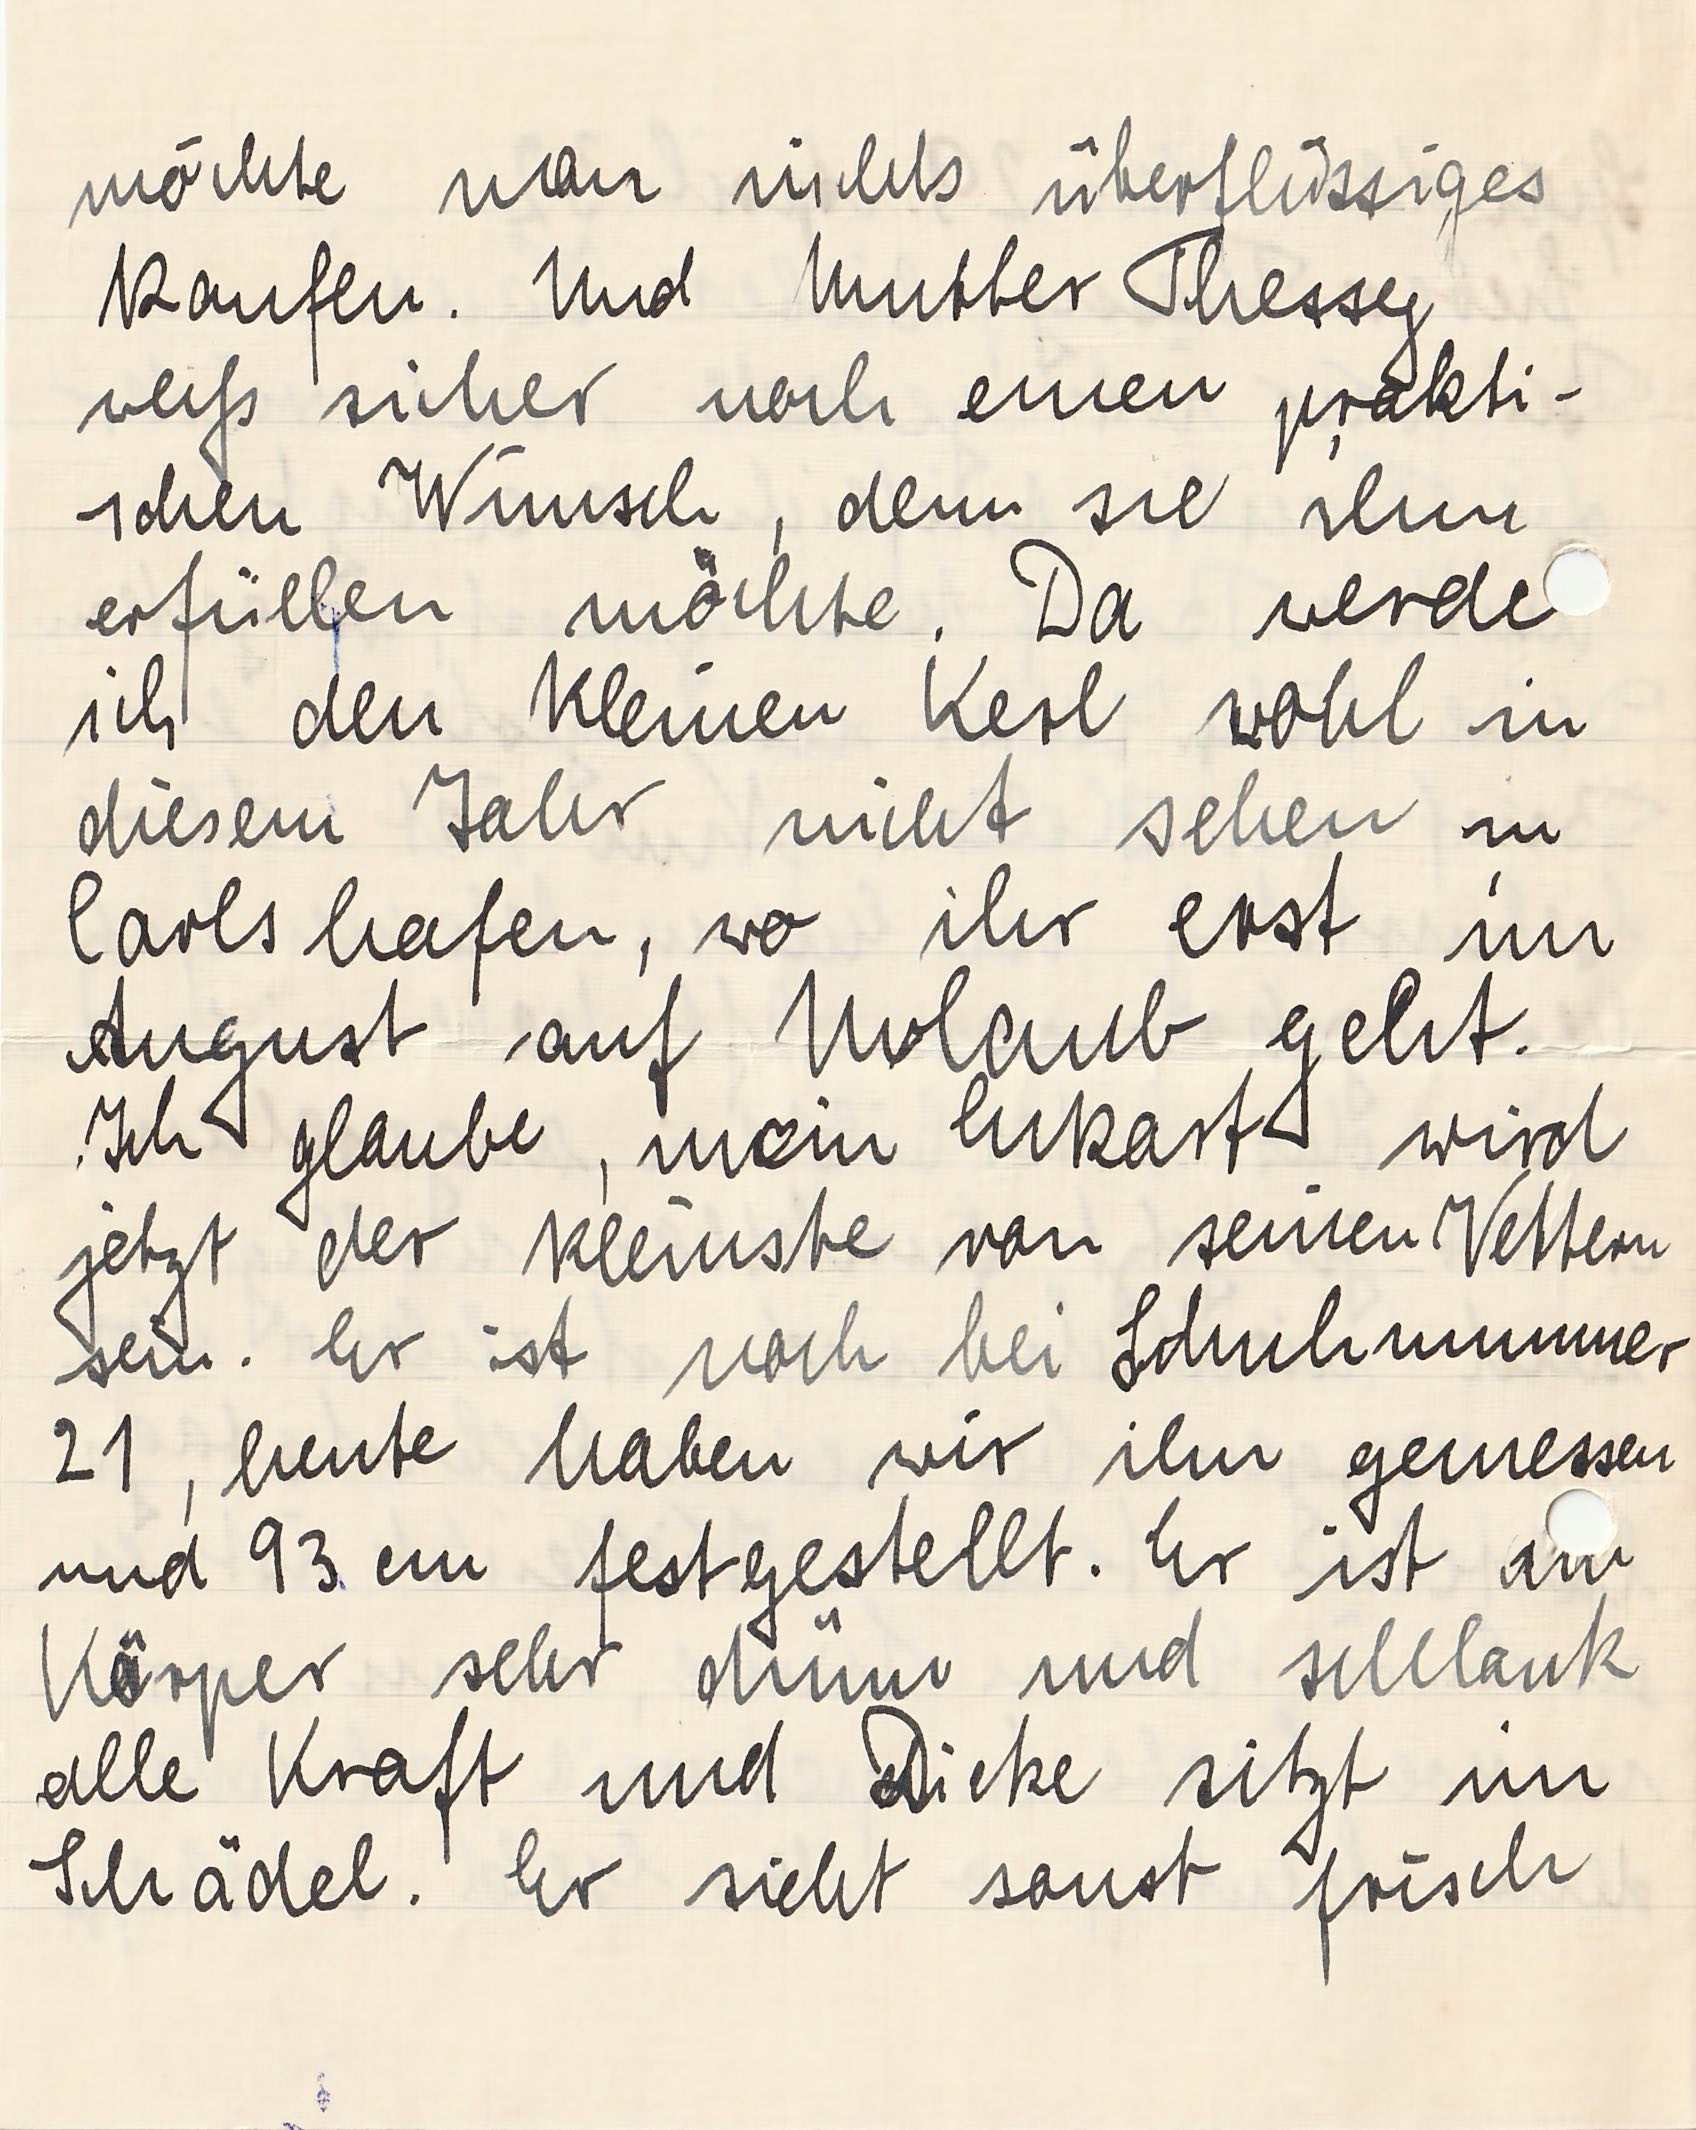 möchte man nichts überflüssiges
kaufen. Und Mutter Thessey
weiß sicher noch einen prakti-
schen Wunsch, denn sie ihm
erfüllen möchte. Da werde
ich den kleinen Kerl wohl in
diesem Jahr nicht sehen in
Carlshafen, wo ihr erst im
August auf Urlaub geht.
Ich glaube, mein wird
jetzt der kleinste von seinen Vettern
sein. Er ist noch bei Schuhnummer
21, heute haben wir ihn gemessen
und 93 cm festgestellt. Er ist am
Körper sehr dünn und schlank
alle Kraft und Dicke sitzt im
Schädel. Er sieht sonst frisch